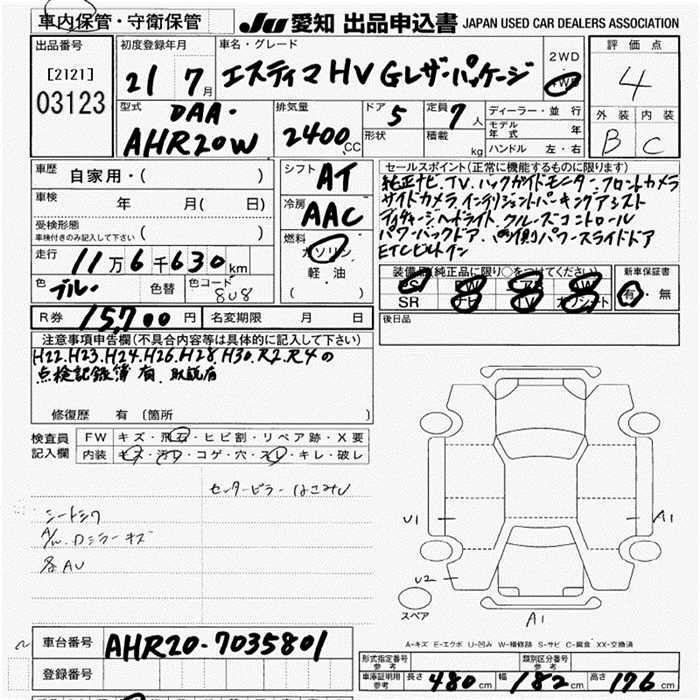 車内保管・守衛保管
JU 愛知 出品申込書 JAPAN USED CAR DEALERS ASSOCIATION
出品番号
[2121]
03123
初度登録年月
21 7月
車名・グレード
エスティマHV Gレザーパッケージ
2WD
4WD
評価点
4
外装 内装
B C
型式
DAA-
AHR20W
排気量
2400 CC
ドア 5
形状
定員 7人
積載 kg
ディーラー・並行
モデル年式 年
ハンドル 左・右
車歴 自家用・( )
車検 年 月( 日)
受検形態
車検付きのみ記入して下さい ( )
走行 11万6千630km
色 ブルー 色替 色コード 8U8
シフト AT
冷房 AAC
燃料 ガソリン
軽油
( )
セールスポイント(正常に機能するものに限ります)
純正ナビ.TV.バックガイドモニター.フロントカメラ
サイドカメラ.インテリジェントパーキングアシスト
ディスチャージヘッドライト.クルーズコントロール
パワーバックドア.両側パワースライドドア
ETCビルトイン
装備品(純正品に限り○をつけてください)
PS PW AB AW
SR ナビ TV カワシート
新車保証書
有・無
R券 15,700円 名変期限 月 日
後日品
注意事項申告欄(不具合内容等は具体的に記入して下さい)
H22.H23.H24.H26.H28.H30.R2.R4の
点検記録簿 有.取説有
修復歴 有〔箇所 〕
検査員記入欄
FW キズ・飛石・ヒビ割・リペア跡・X要
内装 キズ・汚レ・コゲ・穴・スレ・キレ・破レ
センターピラー
シートシワ
キズ
各AU
U1
A1
U2
A1
スペア
A-キズ E-エクボ U-凹み W-補修跡 S-サビ C-腐食 XX-交換済
車台番号 AHR20-7035801
登録番号
形式指定番号 参考
類別区分番号 参考
車庫証明用参考 長さ 480cm 幅 182cm 高さ 176cm